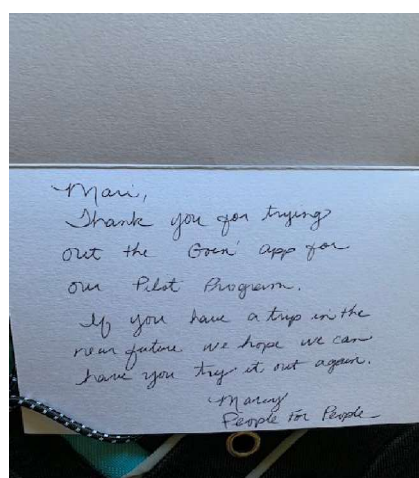 Mari,
Thank you for trying
out the Goin' app for
our Pilot Program.
If you have a trip in the
near future we hope we can
have you try it out again.
Marcy
People For People